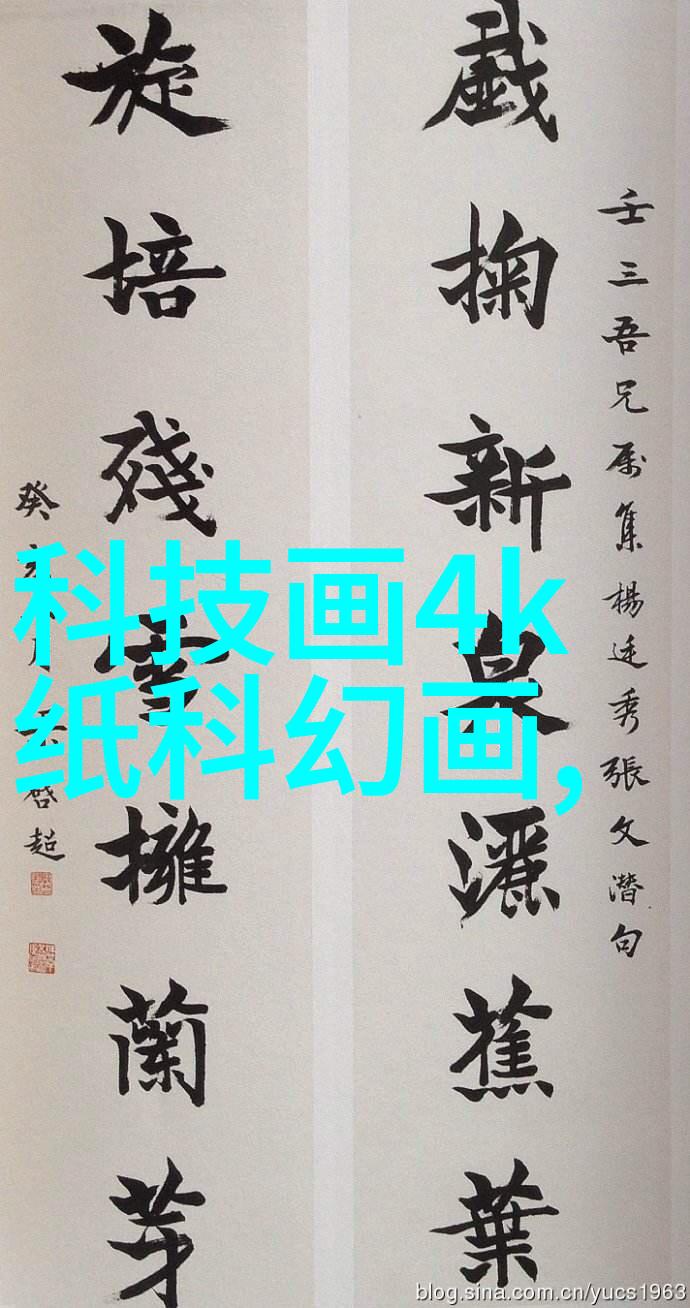 壬三吾兄属集楊廷秀張文潛句
戲掬新泉灑蕉葉
旋培殘雪擁蘭芽
癸啟超
科技画4k
纸科幻画,
blog.sina.com.cn/yucs1963